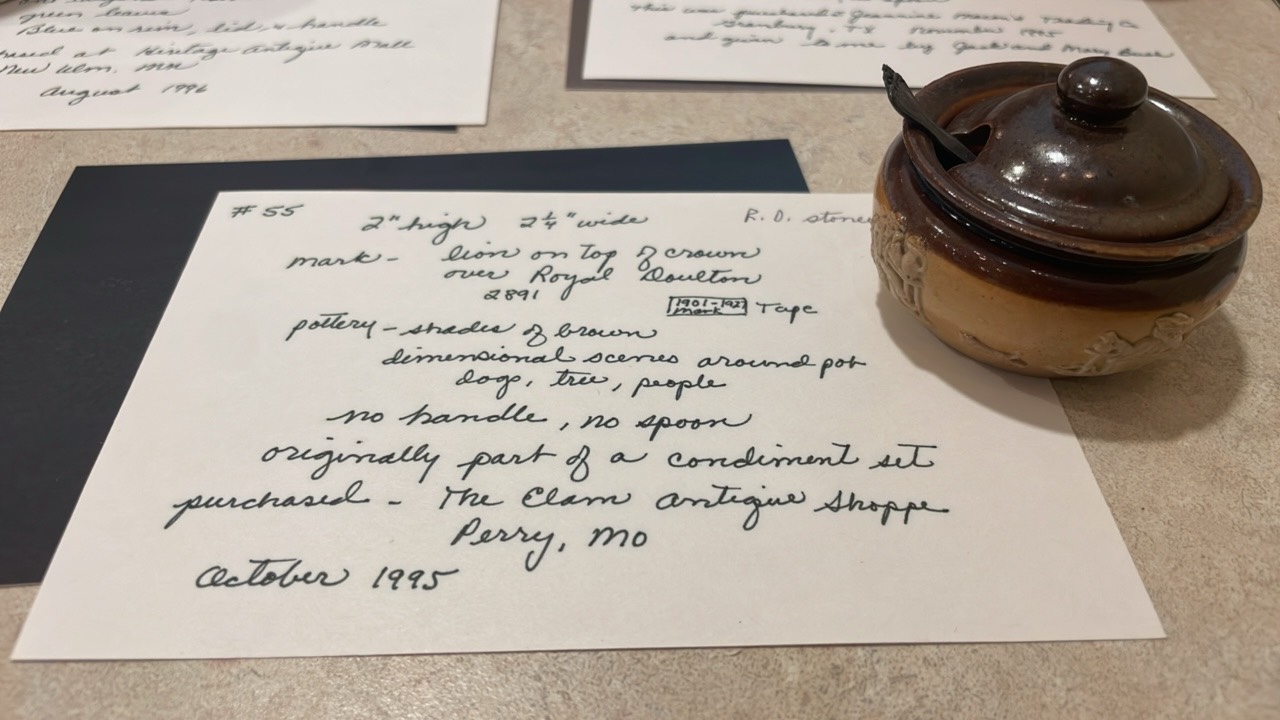 green leaves
Blue on rim, lid, & handle
at Heritage Antique Mall
New Ulm, MN
August 1996
This was purchased @ Trading Co
Granbury, TX November 1995
and given to me by Jack and Mary
#55
2" high 2¼" wide
R.D.
mark - lion on top of crown
over Royal Doulton
2891
1901-192
mark
Tape
pottery - shades of brown
dimensional scenes around pot
dogs, tree, people
no handle, no spoon
originally part of a condiment set
purchased - The Elam Antique Shoppe
Perry, Mo
October 1995